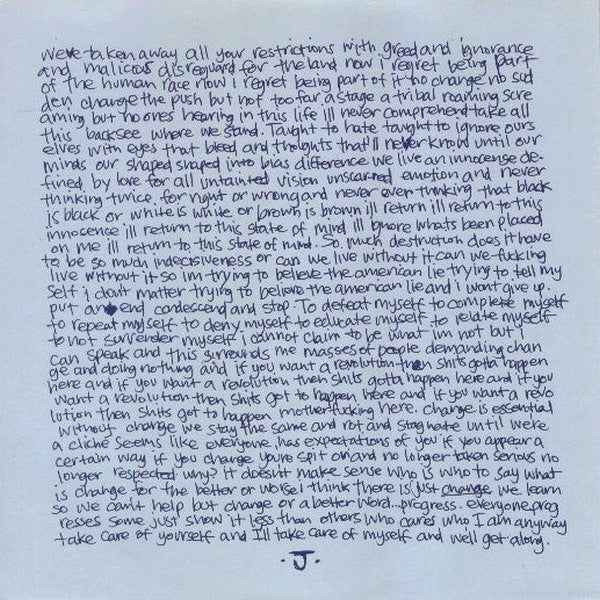 We've taken away all your restrictions with greed and ignorance
and malicious disreguard for the land now I regret being part
of the human race now I regret being part of it no change no sud
den change the push but not too far a stage a tribal roaming scre
aming but no ones hearing in this life ill never comprehend take all
this backsee where we stand. Taught to hate taught to ignore ours
elves with eyes that bleed and thoughts that'll never know until our
minds our shaped shaped into bias difference we live an innocense de-
fined by love for all untainted vision unscarred emotion and never
thinking twice. for right or wrong and never over thinking that black
is black or white is white or brown is brown ill return ill return to this
innocence ill return to this state of mind ill ignore whats been placed
on me ill return to this state of mind. So much destruction does it have
to be so much indecisiveness or can we live without it can we fucking
live without it so im trying to believe the american lie trying to tell my
self i don't matter trying to believe the american lie and i wont give up.
put an end condescend and stop. To defeat myself to complete myself
to repeat myself to deny myself to educate myself to relate myself
to not surrender myself i cannot claim to be what im not but I
can speak and this surrounds me masses of people demanding chan
ge and doing nothing and if you want a revolution then shits gotta happen
here and if you want a revolution then shits gotta happen here and if you
want a revolution then shits got to happen here and if you want a revo
lution then shits got to happen motherfucking here. change is essential
without change we stay the same and rot and stagnate until we're
a cliché seems like everyone has expectations of you if you appear a
certain way if you change youre spit on and no longer taken serious no
longer respected why? it doesn't make sense who is who to say what
is change for the better or worse i think there is just change we learn
so we can't help but change or a better word...progress. everyone prog
resses some just show it less than others who cares who I am anyway
take care of yourself and I'll take care of myself and we'll get along.
· J ·